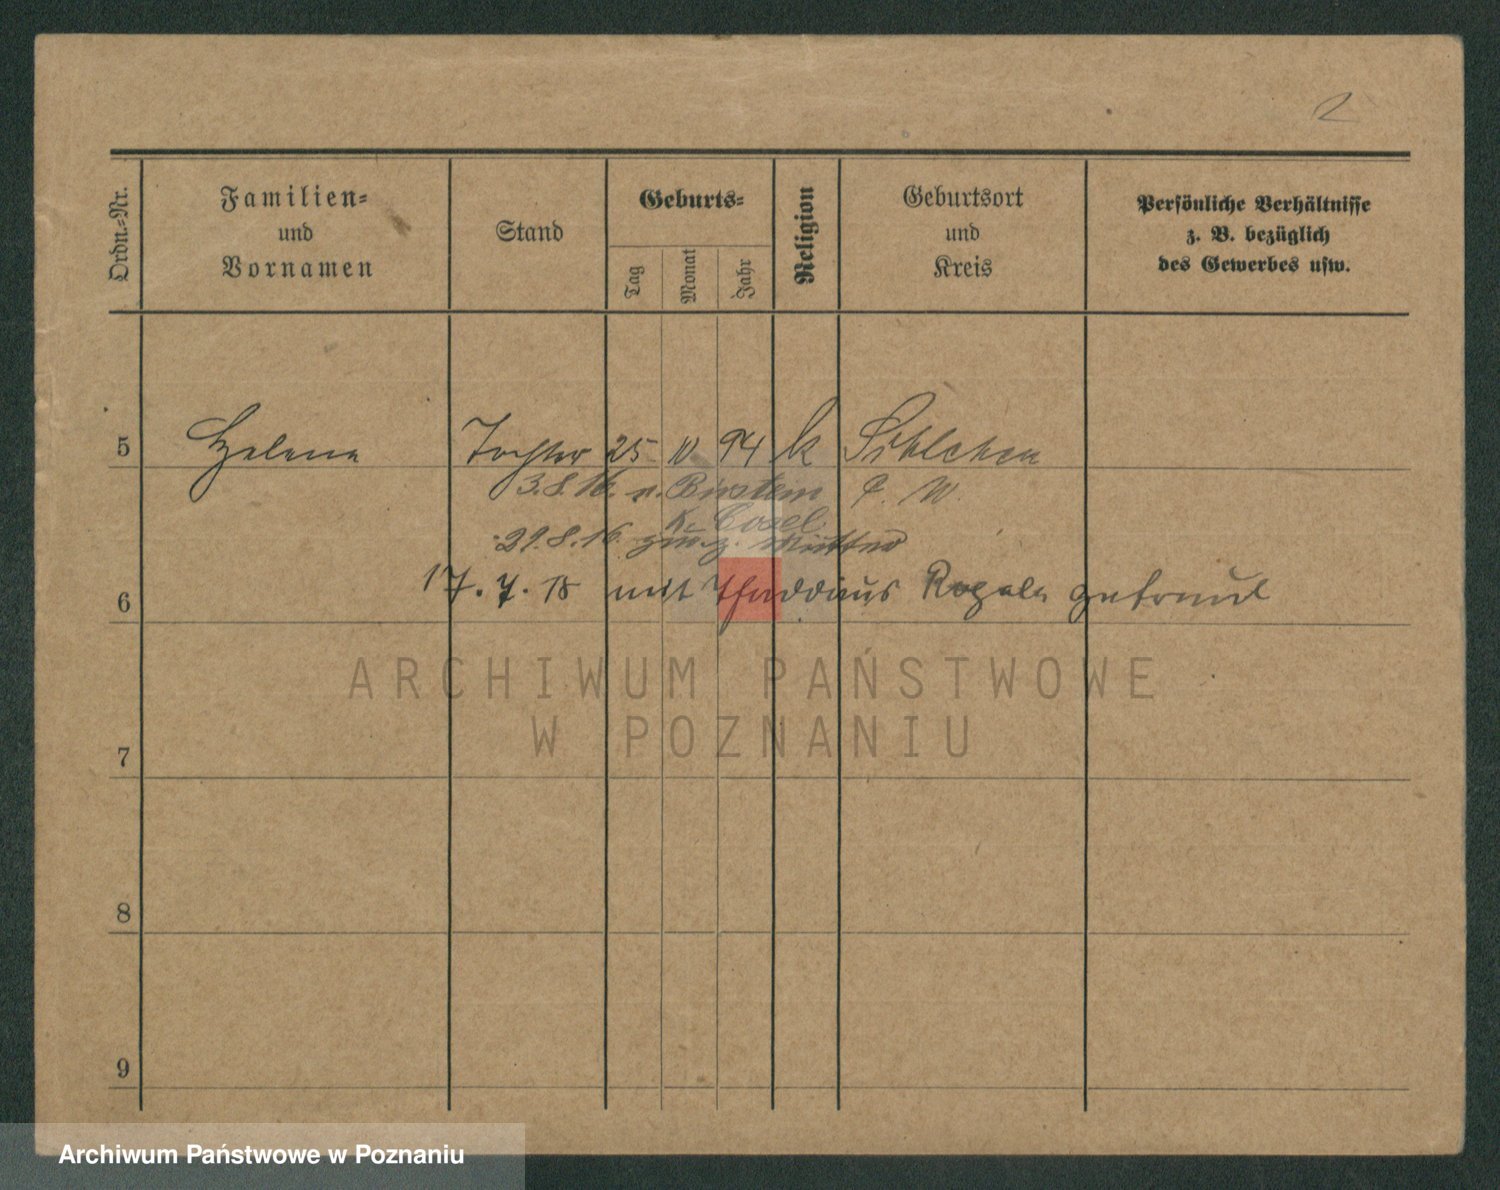 2
Ordn.=Nr.
Familien=
und
Vornamen
Stand
Geburts=
Tag
Monat
Jahr
Religion
Geburtsort
und
Kreis
Persönliche Verhältnisse
z. B. bezüglich
des Gewerbes usw.
5 Helene Tochter 25 10 94 k
3.8.16. n. Birstein
K. Cosel
29.8.16. zur. z. Mutter
6 17.7.18 mit Thaddäus Rogala getraut
ARCHIWUM PAŃSTWOWE
W POZNANIU
7
8
9
Archiwum Państwowe w Poznaniu